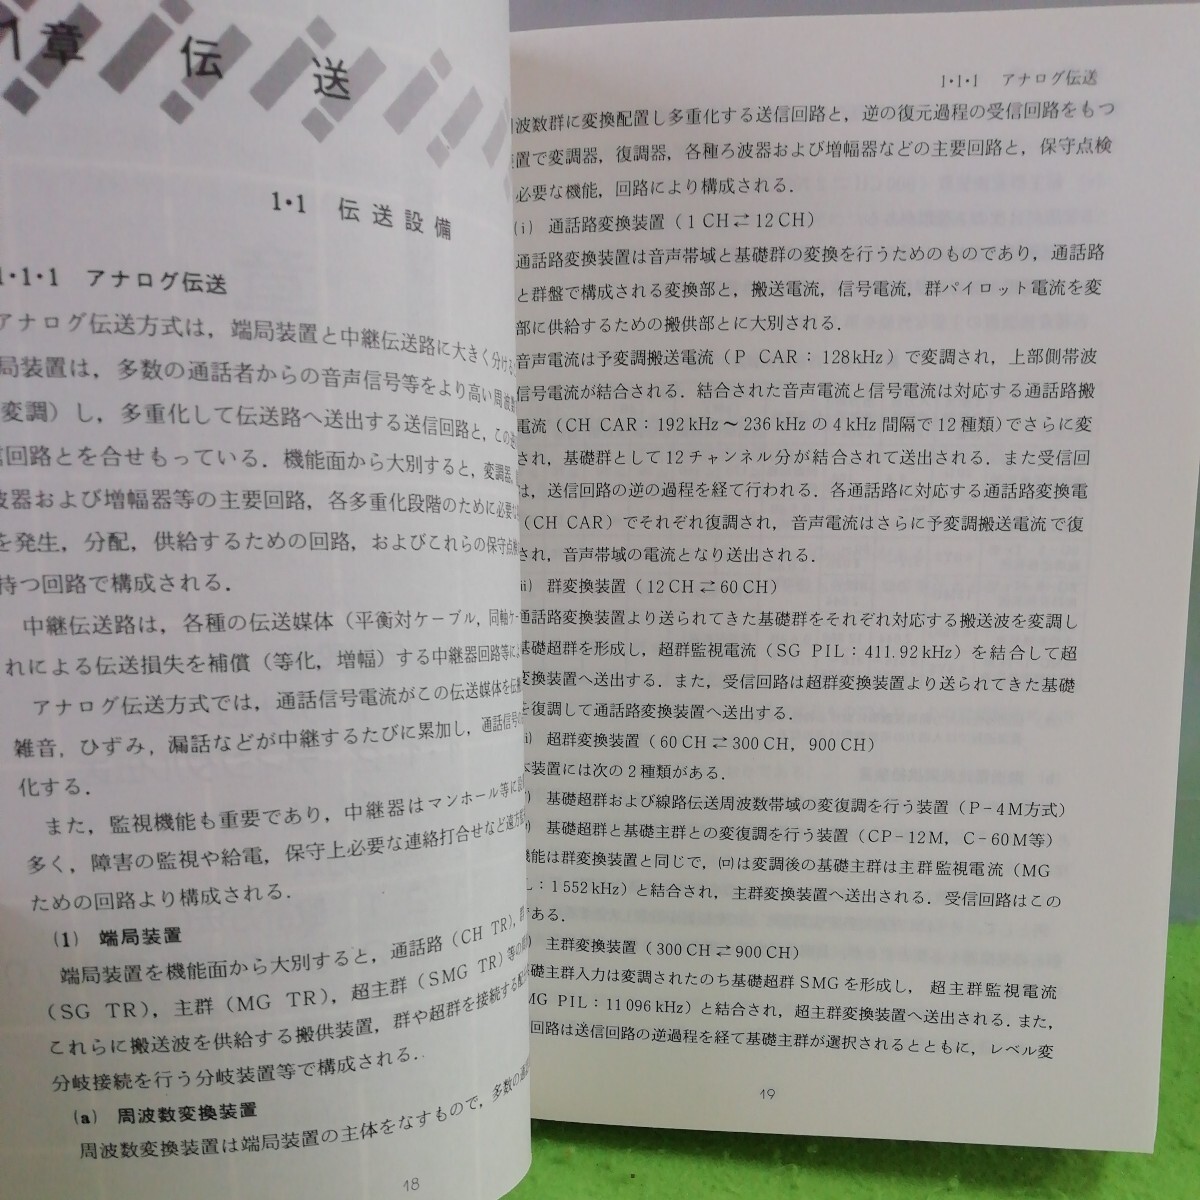 1章 伝 送
1・1 伝送設備
1・1・1 アナログ伝送
アナログ伝送方式は，端局装置と中継伝送路に大きく分ける
局装置は，多数の通話者からの音声信号等をより高い周波数
変調）し，多重化して伝送路へ送出する送信回路と，この逆
信回路とを合せもっている．機能面から大別すると，変調器，
波器および増幅器等の主要回路，各多重化段階のために必要な
を発生，分配，供給するための回路，およびこれらの保守点検
持つ回路で構成される．
中継伝送路は，各種の伝送媒体（平衡対ケーブル，同軸ケー
れによる伝送損失を補償（等化，増幅）する中継器回路等に
アナログ伝送方式では，通話信号電流がこの伝送媒体を伝
雑音，ひずみ，漏話などが中継するたびに累加し，通話信号の
化する．
また，監視機能も重要であり，中継器はマンホール等に設
多く，障害の監視や給電，保守上必要な連絡打合せなど遠方
ための回路より構成される．
(1) 端局装置
端局装置を機能面から大別すると，通話路（CH TR），群
(SG TR)，主群（MG TR），超主群（SMG TR）等の
これらに搬送波を供給する搬供装置，群や超群を接続する
分岐接続を行う分岐装置等で構成される．
(a) 周波数変換装置
周波数変換装置は端局装置の主体をなすもので，多数の通
18
1・1・1 アナログ伝送
周波数群に変換配置し多重化する送信回路と，逆の復元過程の受信回路をもつ
装置で変調器，復調器，各種ろ波器および増幅器などの主要回路と，保守点検
必要な機能，回路により構成される．
(i) 通話路変換装置（1 CH⇄12 CH）
通話路変換装置は音声帯域と基礎群の変換を行うためのものであり，通話路
と群盤で構成される変換部と，搬送電流，信号電流，群パイロット電流を変
部に供給するための搬供部とに大別される．
音声電流は予変調搬送電流（P CAR：128kHz）で変調され，上部側帯波
信号電流が結合される．結合された音声電流と信号電流は対応する通話路搬
電流（CH CAR：192 kHz～236 kHz の 4 kHz 間隔で 12 種類）でさらに変
され，基礎群として 12 チャンネル分が結合されて送出される．また受信回
は，送信回路の逆の過程を経て行われる．各通話路に対応する通話路変換電
（CH CAR）でそれぞれ復調され，音声電流はさらに予変調搬送電流で復
され，音声帯域の電流となり送出される．
ii) 群変換装置（12 CH⇄60 CH）
通話路変換装置より送られてきた基礎群をそれぞれ対応する搬送波を変調し
基礎超群を形成し，超群監視電流（SG PIL：411.92kHz）を結合して超
変換装置へ送出する．また，受信回路は超群変換装置より送られてきた基礎
を復調して通話路変換装置へ送出する．
i) 超群変換装置（60 CH⇄300 CH，900 CH）
本装置には次の 2 種類がある．
) 基礎超群および線路伝送周波数帯域の変復調を行う装置（P-4M方式）
) 基礎超群と基礎主群との変復調を行う装置（CP-12M，C-60M等）
機能は群変換装置と同じで，(ロ)は変調後の基礎主群は主群監視電流（MG
IL：1552 kHz）と結合され，主群変換装置へ送出される．受信回路はこの
である．
) 主群変換装置（300 CH⇄900 CH）
礎主群入力は変調されたのち基礎超群 SMG を形成し，超主群監視電流
MG PIL：11096 kHz）と結合され，超主群変換装置へ送出される．また，
回路は送信回路の逆過程を経て基礎主群が選択されるとともに，レベル変
19